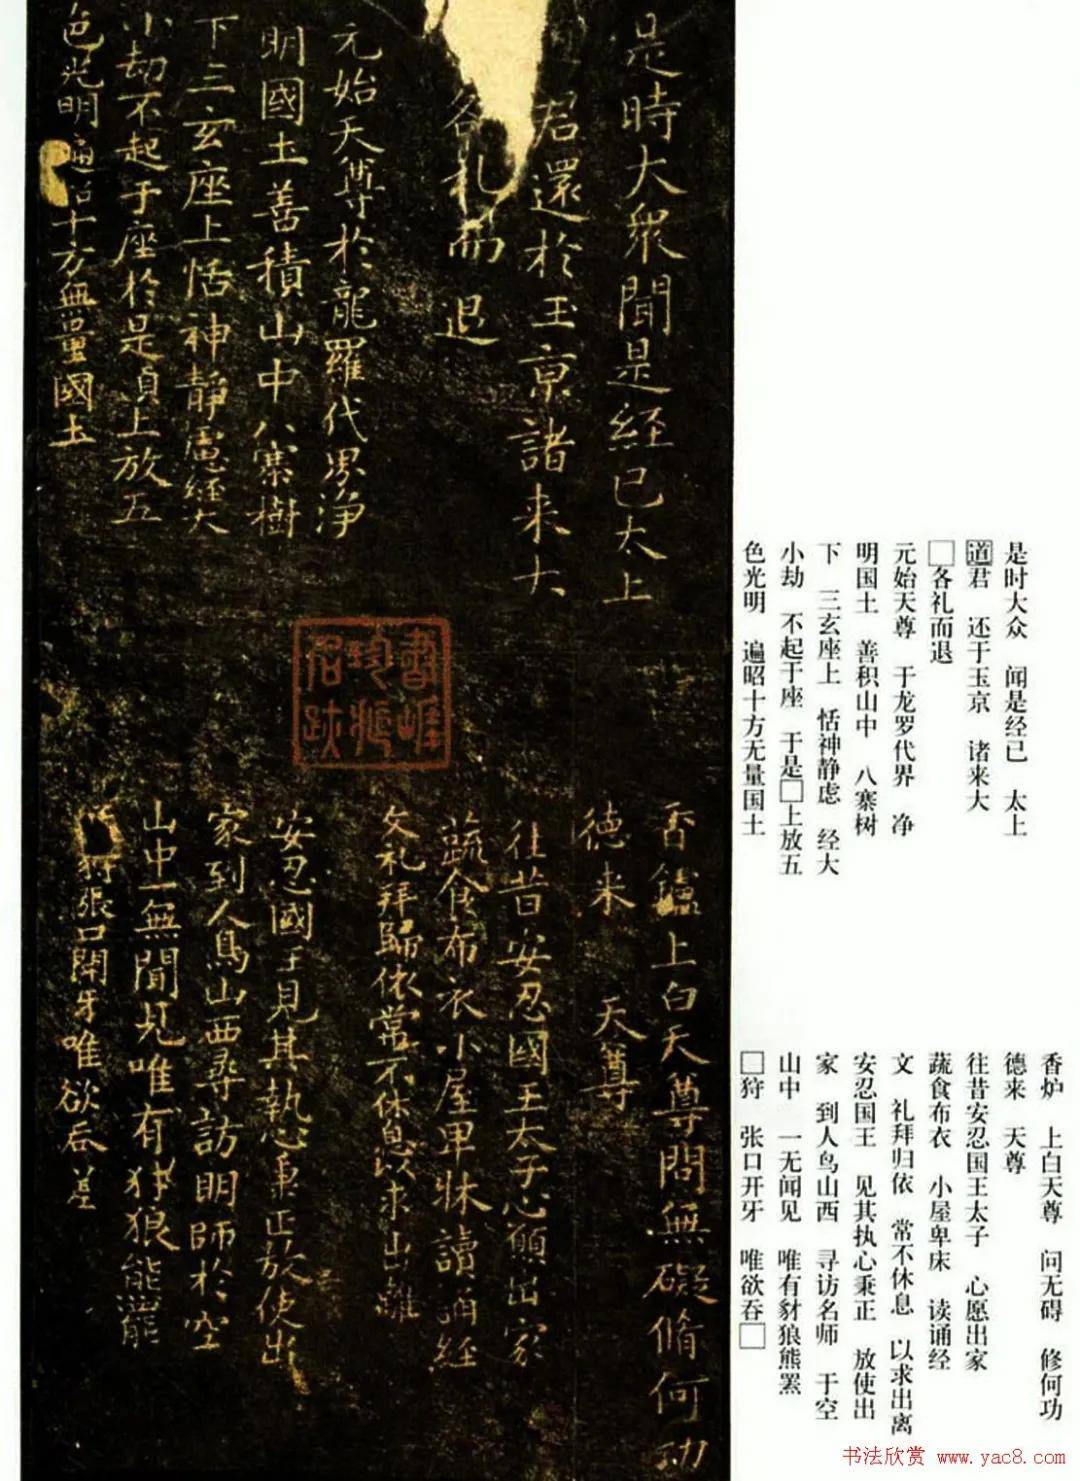 是時大衆聞是經已太上
君還於玉京諸来大
各礼而退
元始天尊於龍羅代界淨
明國土善積山中八寨樹
下三玄座上恬神靜慮經大
小劫不起于座於是貞上放五
色光明遍十方無量國土
書崕珍藏名跡
香鑪上白天尊問無礙脩何功
德来 天尊
往昔安忍國王太子心願出家
蔬食布衣小屋卑牀讀誦經
文礼拜歸依常不休息以求出離
安忍國王見其執心秉正放使出
家到人鳥山西尋訪明師於空
山中一無聞見唯有犲狼熊羆
狩張口開牙唯欲吞
是时大众 闻是经已 太上
道君 还于玉京 诸来大
□各礼而退
元始天尊 于龙罗代界 净
明国土 善积山中 八寨树
下 三玄座上 恬神静虑 经大
小劫 不起于座 于是□上放五
色光明 遍昭十方无量国土
香炉 上白天尊 问无碍 修何功
德来 天尊
往昔安忍国王太子 心愿出家
蔬食布衣 小屋卑床 读诵经
文 礼拜归依 常不休息 以求出离
安忍国王 见其执心秉正 放使出
家 到人鸟山西 寻访名师 于空
山中 一无闻见 唯有豺狼熊罴
□狩 张口开牙 唯欲吞□
书法欣赏 www.yac8.com